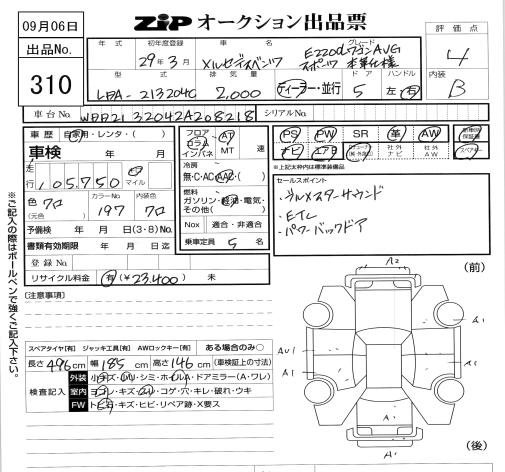 09月06日
出品No.
310
ZiP オークション出品票
評価点
4
内装
B
年式
初年度登録
車名
グレード
29年3月
メルセデスベンツ
E220dワゴンAVG
スポーツ 本革仕様
型式
排気量
ドア
ハンドル
LDA-213204C
2,000
ディーラー・並行
5
左・右
車台No.
WDD2132042A208218
シリアルNo.
車歴 自家用・レンタ・( )
車検 年 月
走行
105,750
マイル
色 クロ
(元色)
カラーNo.
197
内装色
クロ
予備検 年 月 日(3・8)No.
書類有効期限 年 月 日迄
登録No.
リサイクル料金 有(¥23,400) 未
フロア
コラム
インパネ
AT
MT
速
冷房
無・C・AC・AAC・( )
燃料
ガソリン・軽油・電気・
その他( )
Nox 適合・非適合
乗車定員 5 名
PS
PW
SR
革
AW
新車時
保証書
ナビ
エアB
社外
ナビ
社外
AW
スペアキー
*上記太枠内は標準装備品
セールスポイント
・ブルメスターサウンド
・ETC
・パワーバックドア
※ご記入の際はボールペンで強くご記入下さい。
[注意事項]
スペアタイヤ[有] ジャッキ工具[有] AWロックキー[有] ある場合のみ○
長さ 496 cm 幅 185 cm 高さ 146 cm (車検証上の寸法)
検査記入
外装 小キズ・小凹・シミ・ホイルA・ドアミラー(A・ワレ)
室内 ヨゴレ・キズ・スレ・コゲ・穴・キレ・破れ・ウキ
FW トビ石・キズ・ヒビ・リペア跡・X要ス
(前)
A2
A1
AU1
A1
A1
A1
A1
A1
(後)